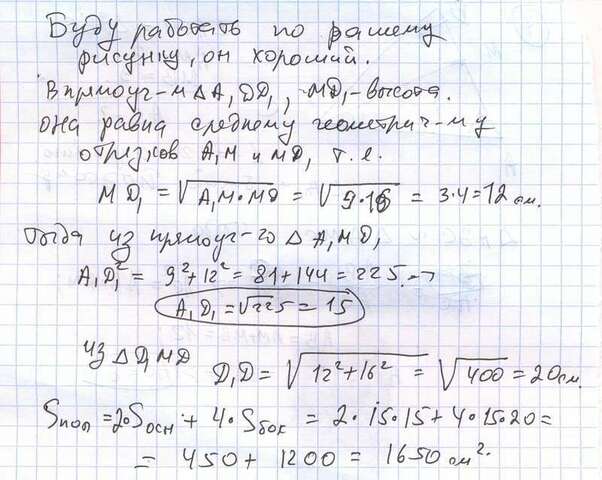 Буду работать по вашему
рисунку, он хороший.
В прямоуг-м △ A₁DD₁, MD₁-высота.
она равна среднему геометрич-му
отрезков A₁M и MD, т.е.
MD₁ = √A₁M·MD = √9·16 = 3·4=12 см.
тогда из прямоуг-го △ A₁MD₁
A₁D₁² = 9²+12² = 81+144 = 225. →
A₁D₁ = √225 = 15
из △ D₁MD D₁D = √12²+16² = √400 = 20см.
Sпол = 2·Sосн + 4·Sбок = 2·15·15+4·15·20=
= 450+1200 = 1650 см².